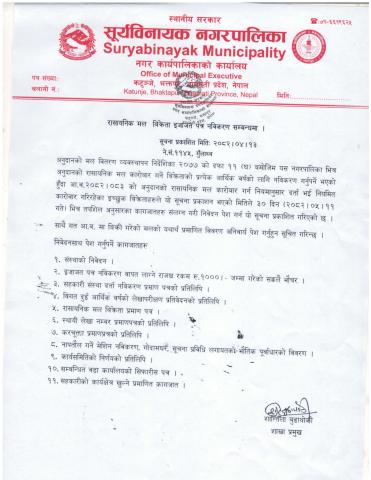 स्थानीय सरकार
☎:०१-६६१९६२५
सूर्यविनायक नगरपालिका
Suryabinayak Municipality
नगर कार्यपालिकाको कार्यालय
Office of Municipal Executive
पत्र संख्या:
कटुञ्जे, भक्तपुर, बागमती प्रदेश, नेपाल
चलानी नं.:
Katunje, Bhaktapur, Bagmati Province, Nepal
मिति:
रासायनिक मल विक्रेता इजाजत पत्र नविकरण सम्बन्धमा ।
सूचना प्रकाशित मिति: २०८२।०४।१३
ने.सं.११४५, गुँलाथ्व
अनुदानको मल वितरण व्यवस्थापन निर्देशिका २०७७ को दफा ११ (घ) बमोजिम यस नगरपालिका भित्र
अनुदानको रासायनिक मल कारोबार गर्ने विक्रेताको प्रत्येक आर्थिक बर्षको लागि नविकरण गर्नुपर्ने भएको
हुँदा आ.ब.२०८२।०८३ को अनुदानको रासायनिक मल कारोबार गर्न नियमानुसार दर्ता भई नियमित
कारोबार गरिरहेका इच्छुक विक्रेताहरुले यो सूचना प्रकाशन भएको मितिले ३० दिन (२०८२।०५।११
गते) भित्र तपशिल अनुसारका कागजातहरु संलग्न गरी निवेदन पेश गर्न यो सूचना प्रकाशित गरिएको छ ।
साथै गत आ.ब. मा बिक्री गरेको मलको यथार्थ प्रमाणित विवरण अनिवार्य पेश गर्नुहुन सूचित गरिन्छ ।
निवेदनसाथ पेश गर्नुपर्ने कागजातहरु
१. संस्थाको निवेदन ।
२. इजाजत पत्र नविकरण वापत लाग्ने राजश्व रकम रु.१०००/- जम्मा गरेको सक्कलै भौचर ।
३. सहकारी संस्था दर्ता नविकरण प्रमाण पत्रको प्रतिलिपि ।
४. विगत दुई आर्थिक बर्षको लेखापरीक्षण प्रतिवेदनको प्रतिलिपि ।
५. रासायनिक मल विक्रेता प्रमाण पत्र ।
६. स्थायी लेखा नम्बर प्रमाणपत्रको प्रतिलिपि ।
७. करचुक्ता प्रमाणपत्रको प्रतिलिपि ।
८. नापतौल गर्ने मेशिन नविकरण, गोदामघर, सूचना प्रविधि लगायतको भौतिक पूर्वाधारको विवरण ।
९. कार्यसमितिको निर्णयको प्रतिलिपि ।
१०. सम्बन्धित वडा कार्यालयको सिफारिस पत्र ।
११. सहकारीको कार्यक्षेत्र खुल्ने प्रमाणित कागजात ।
शाखा प्रमुख